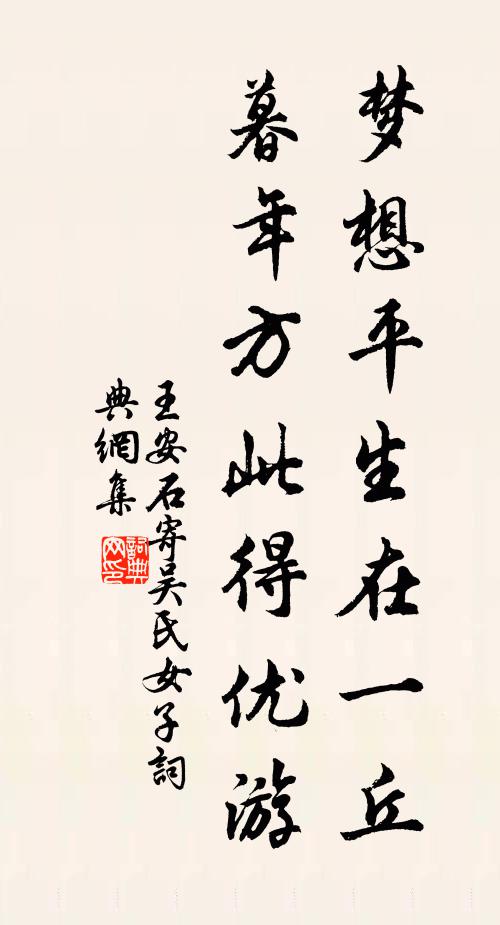 梦想平生在一丘
暮年方此得优游
王安石寄吴氏女子詞
典網集
詞典网印